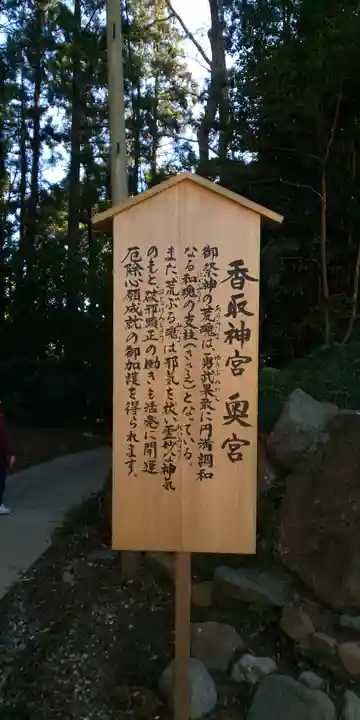 香取神宮 奥宮
御祭神の荒魂は、勇武果敢に円満調和
なる和魂の支柱(ささえ)となっている。
また、荒ぶる魂は邪気を祓い霊妙な神気
のもと、破邪顕正の働きも活発に開運
厄除心願成就の御加護を得られます。